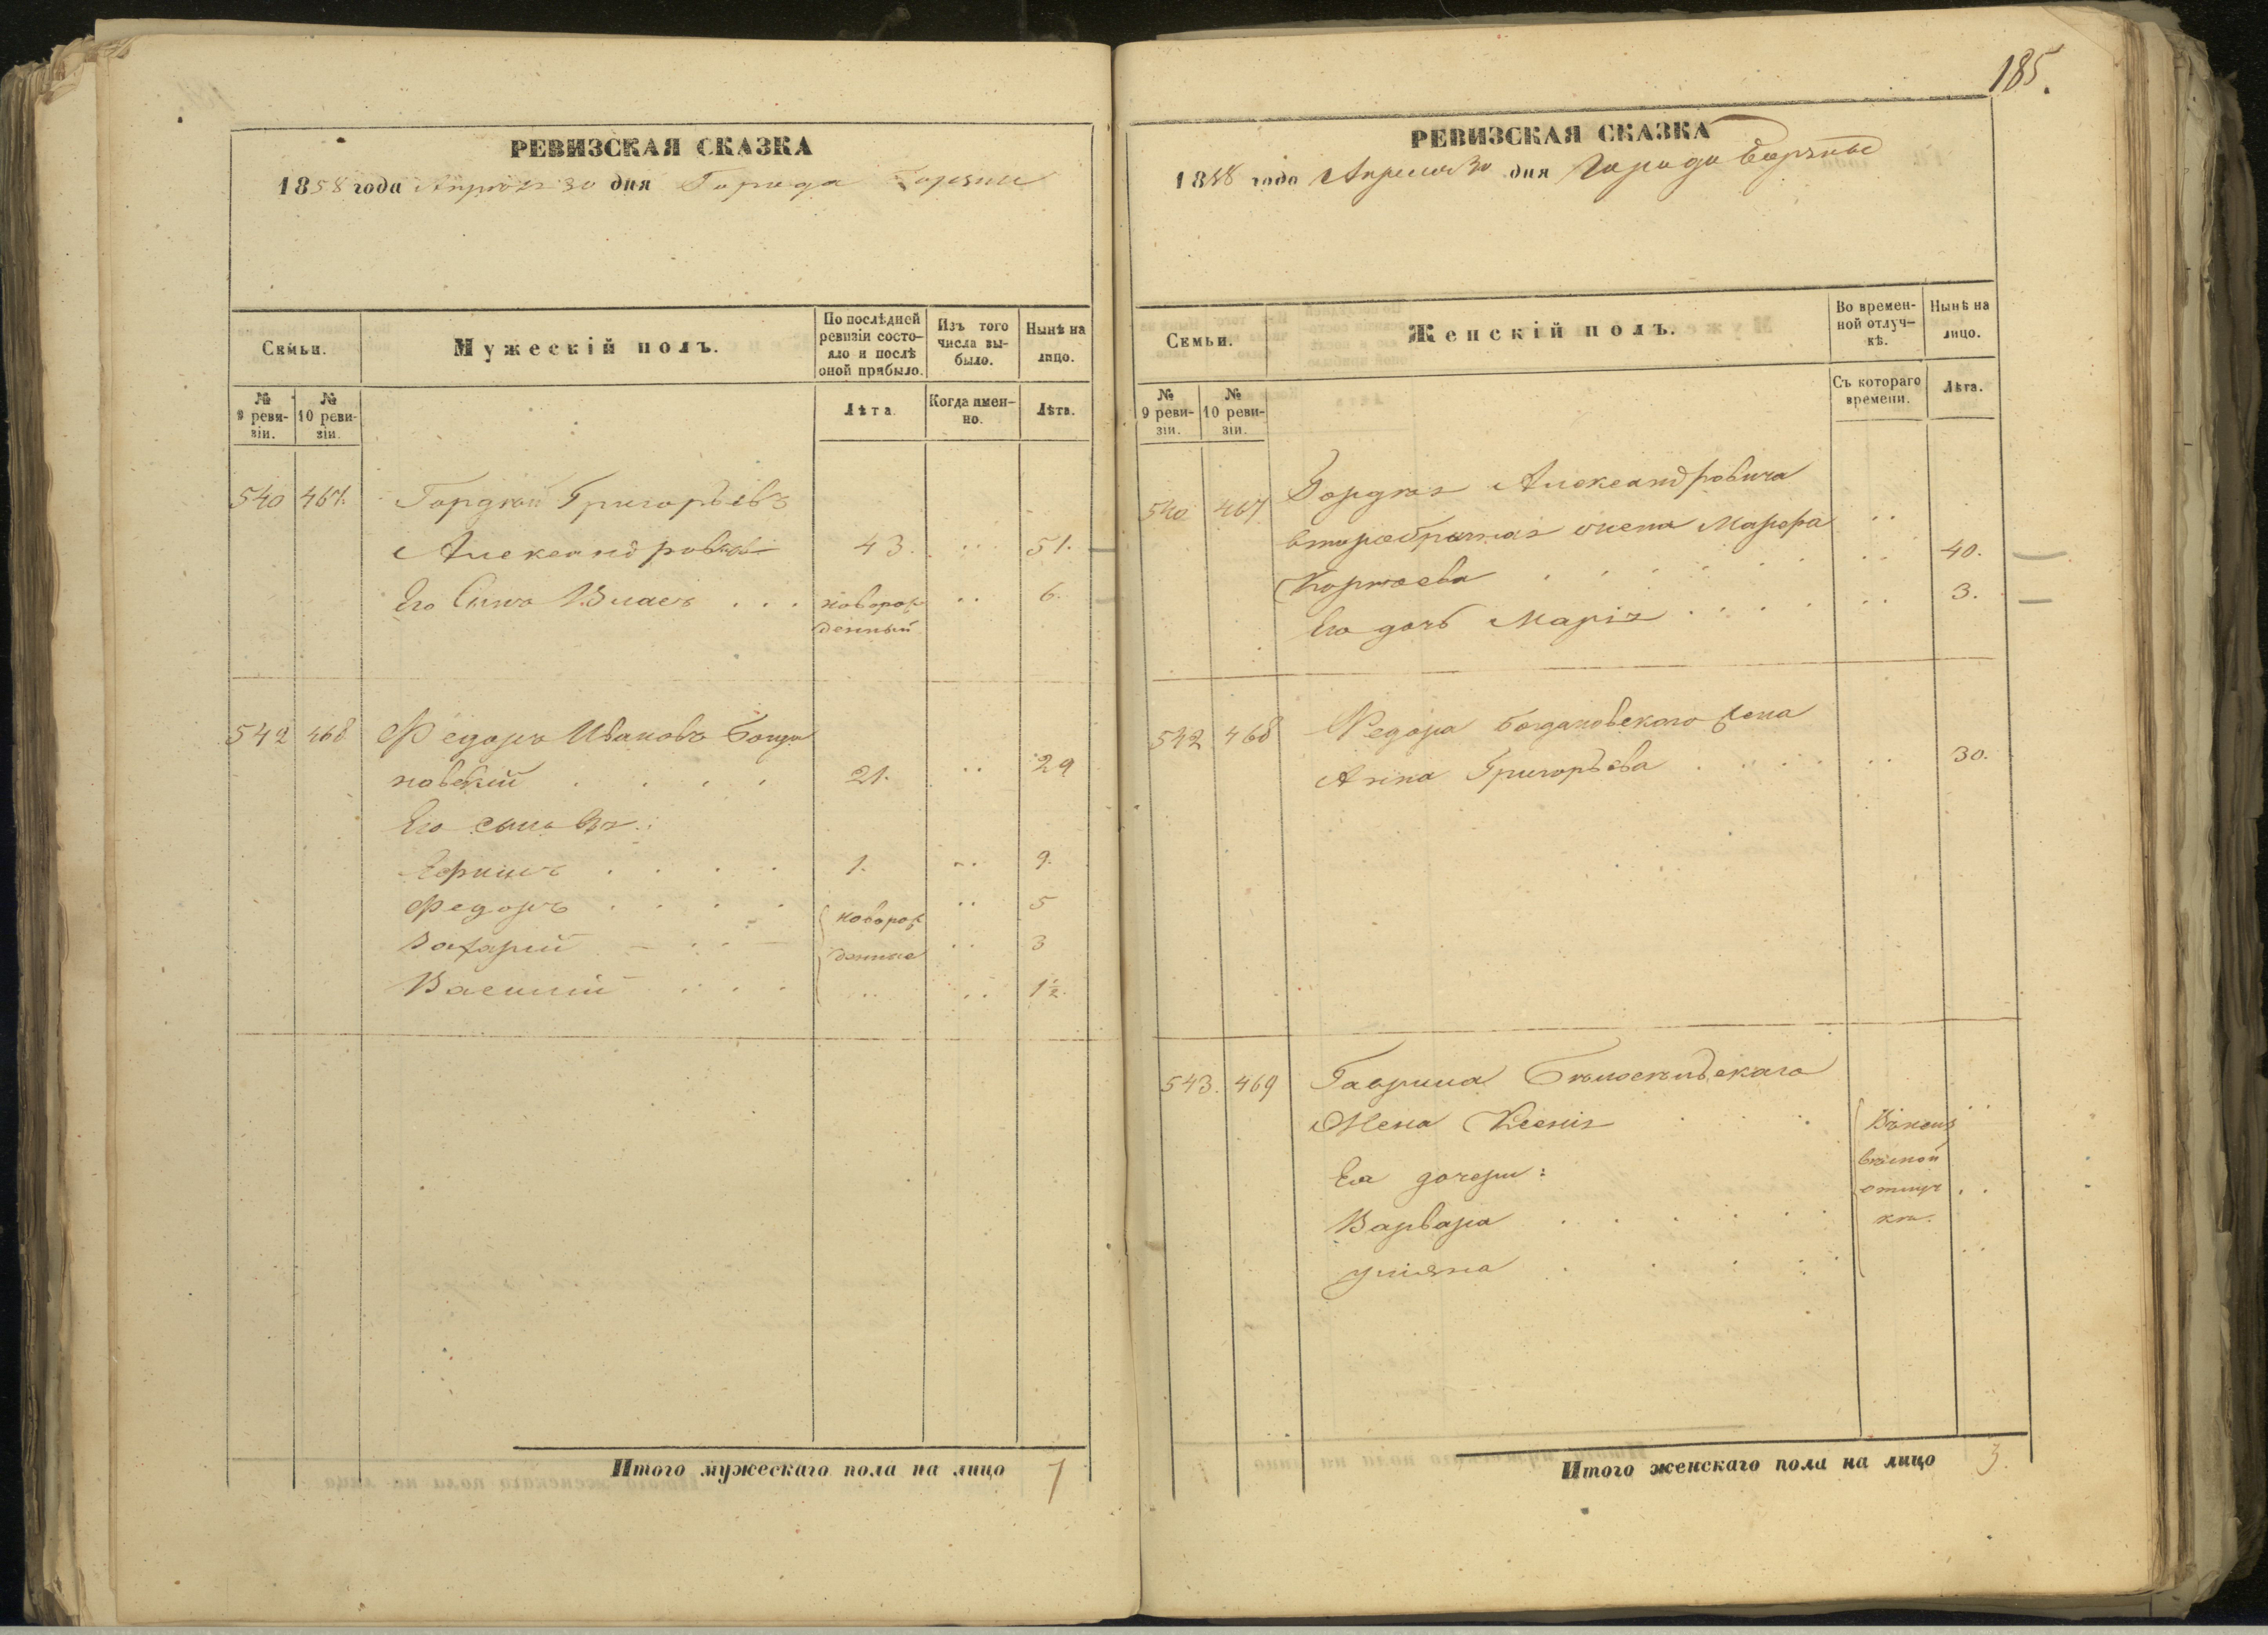 185.
РЕВИЗСКАЯ СКАЗКА
1858 года Апреля 30 дня Города Борзны
Семьи.
Мужескій полъ.
По послѣдней ревизіи состояло и послѣ оной прибыло.
Изъ того числа выбыло.
Нынѣ на лицо.
№ 9 ревизіи.
№ 10 ревизіи.
Лѣта.
Когда именно.
Лѣта.
540 467. Гордѣй Григорьевъ
43. .. 51.
Его Сынъ Власъ . . . новорож .. 6.
денный
542 468 Федоръ Ивановъ Богда
новскій . . . . 21. .. 29
Его сыновья:
Ефимъ . . . . 1. .. 9.
Федоръ . . . . новорож .. 5
Захарий денные .. 3
Василій . . . .. .. 1½.
Итого мужескаго пола на лицо 7
РЕВИЗСКАЯ СКАЗКА
1858 года Апреля 30 дня Города Борзны
Семьи.
Женскій полъ.
Во временной отлучкѣ.
Нынѣ на лицо.
№ 9 ревизіи.
№ 10 ревизіи.
Съ котораго времени.
Лѣта.
540 467 Гордѣя Александровича
второбрачная жена Марфа ..
.. 40.
Его дочь Марія . . . . .. 3.
542 468 Федора Богдановскаго жена
Анна Григорьева . . . . .. 30.
543. 469 Гаврила
Жена Ксенія ..
Ея дочери:
Варвара . . . . . .
Уліяна . . . . ..
Итого женскаго пола на лицо 3.